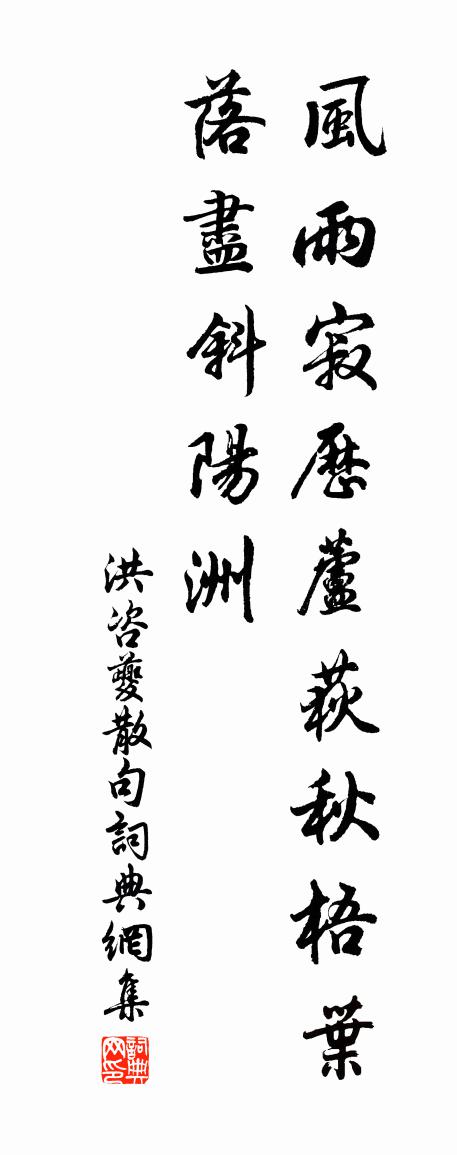 風雨寂歷蘆荻秋梧葉
落盡斜陽洲
洪咨夔散句詞典網集
詞典网印